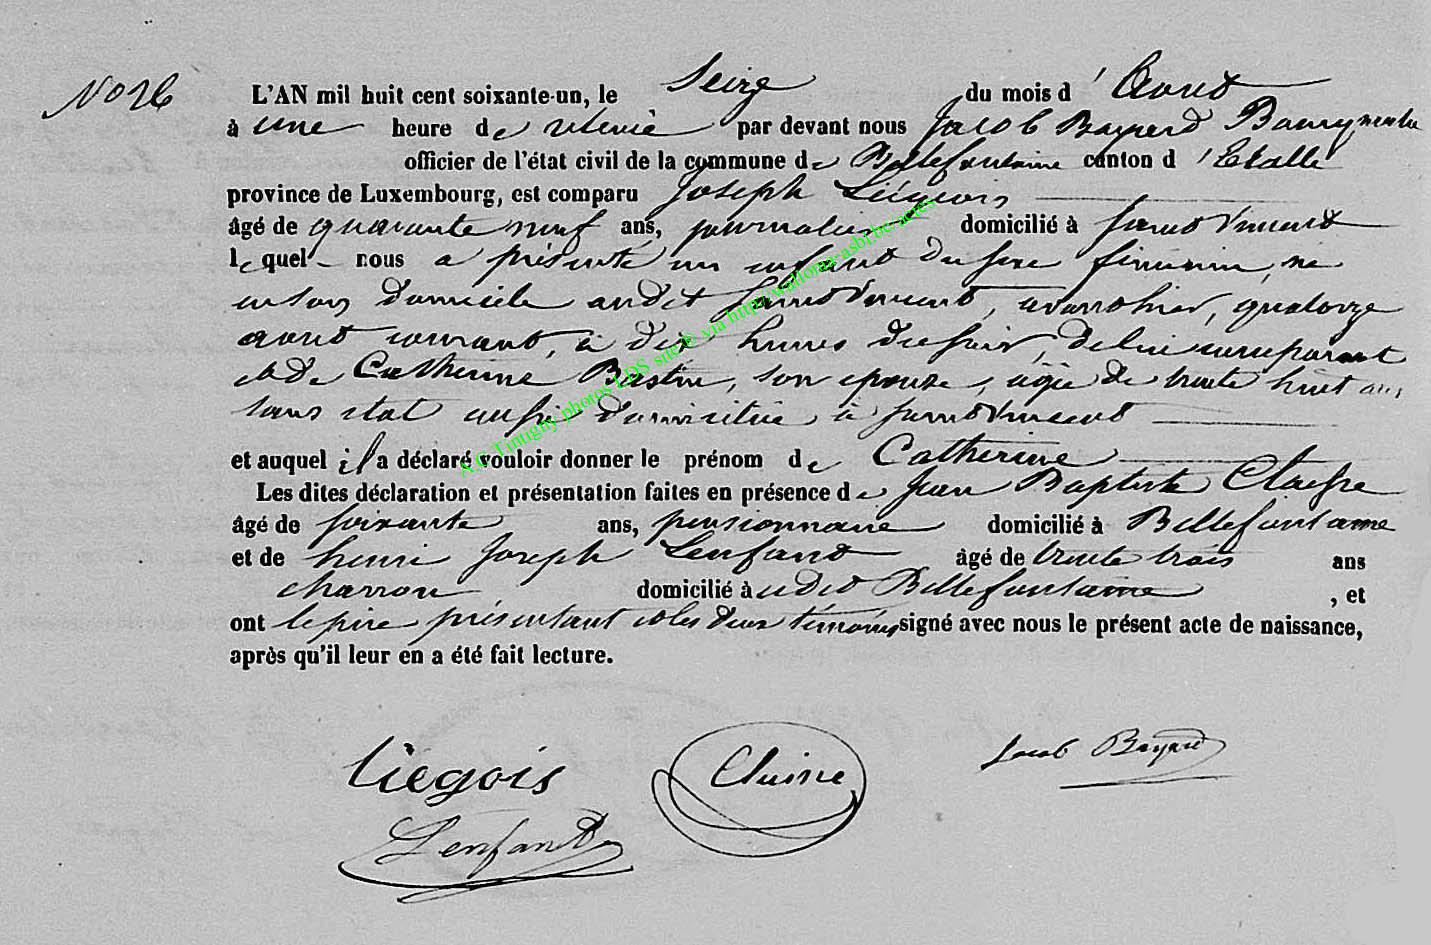 No 26
L'AN mil huit cent soixante-un, le Seize du mois d'Aout
à une heure de relevée par devant nous Jacob Bayard Bourgmestre
officier de l'état civil de la commune de Bellefontaine canton d'Etalle
province de Luxembourg, est comparu Joseph Liégeois
âgé de quarante neuf ans, journalier domicilié à
lequel nous a présenté un enfant du sexe feminin, né
en son domicile audit, avant hier, quatorze
aout courant, à dix heures du soir, de lui comparant
et de Catherine Bastin, son epouse, agée de trente huit ans
sans etat aussi domiciliée à
et auquel il a déclaré vouloir donner le prénom de Catherine
Les dites déclaration et présentation faites en présence de Jean Baptiste
âgé de soixante ans, pensionnaire domicilié à Bellefontaine
et de henri Joseph Lenfant âgé de trente trois ans
charron domicilié à udit Bellefontaine, et
ont le père présentant et les deux témoins signé avec nous le présent acte de naissance,
après qu'il leur en a été fait lecture.
A.C Tintigny photos LDS site & via http://wallonia-asbl.be/actes
Liègois
Jacob Bayard
Lenfant